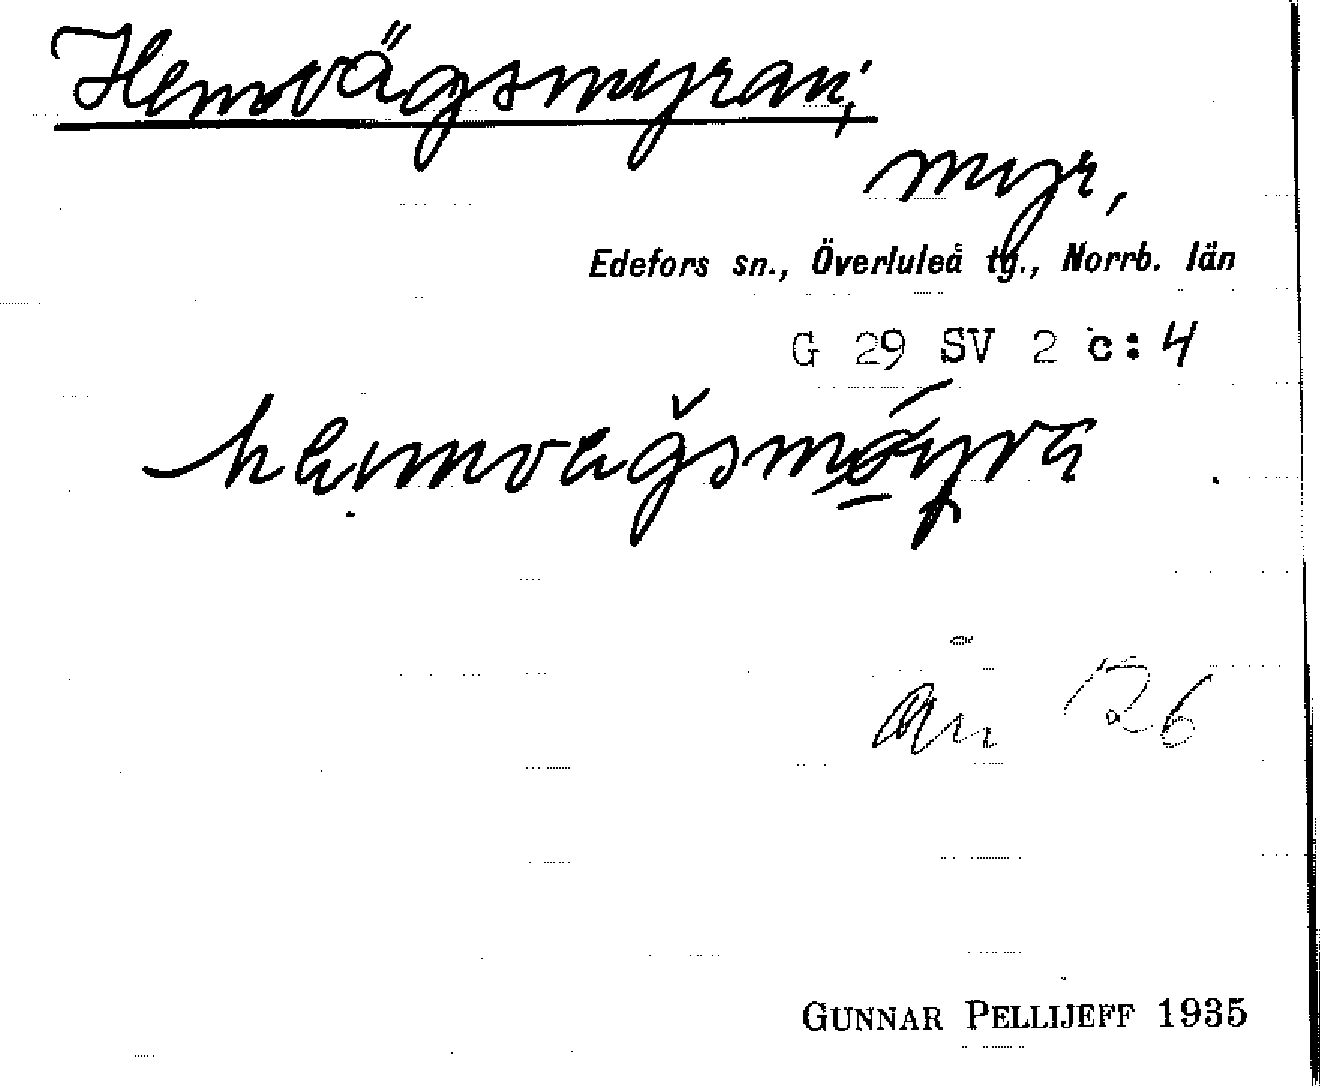 Hemvägsmyran;
myr,
Edefors sn., Överluleå tg., Norrb. län
G 29 SV 2 c:4
126
GUNNAR PELLIJEFF 1935